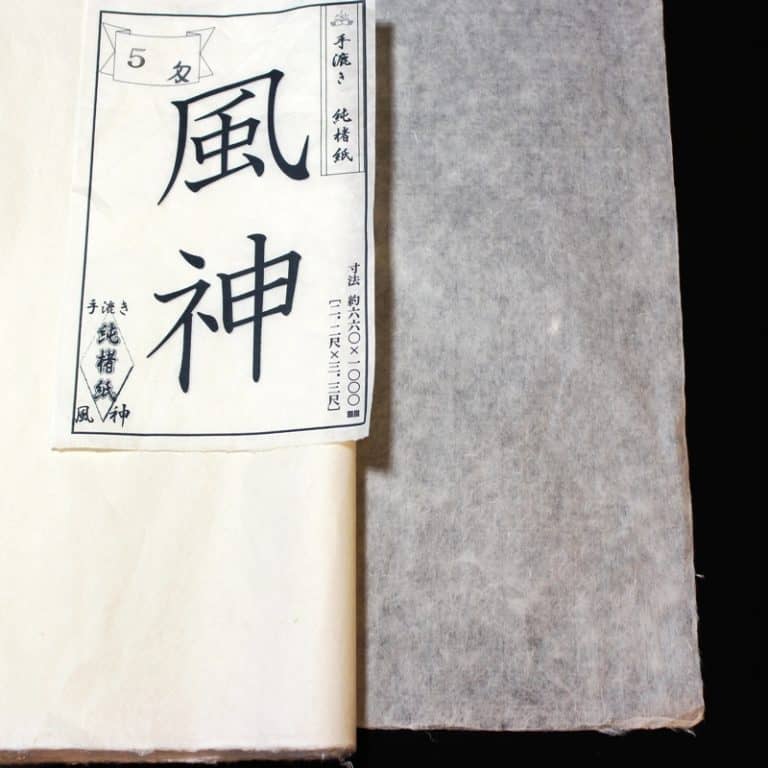 5 匁
手漉き 純楮紙
風神
寸法 約六六〇×一〇〇〇㎜
[二.二尺×三.三尺]
手漉き
純楮紙
風 神